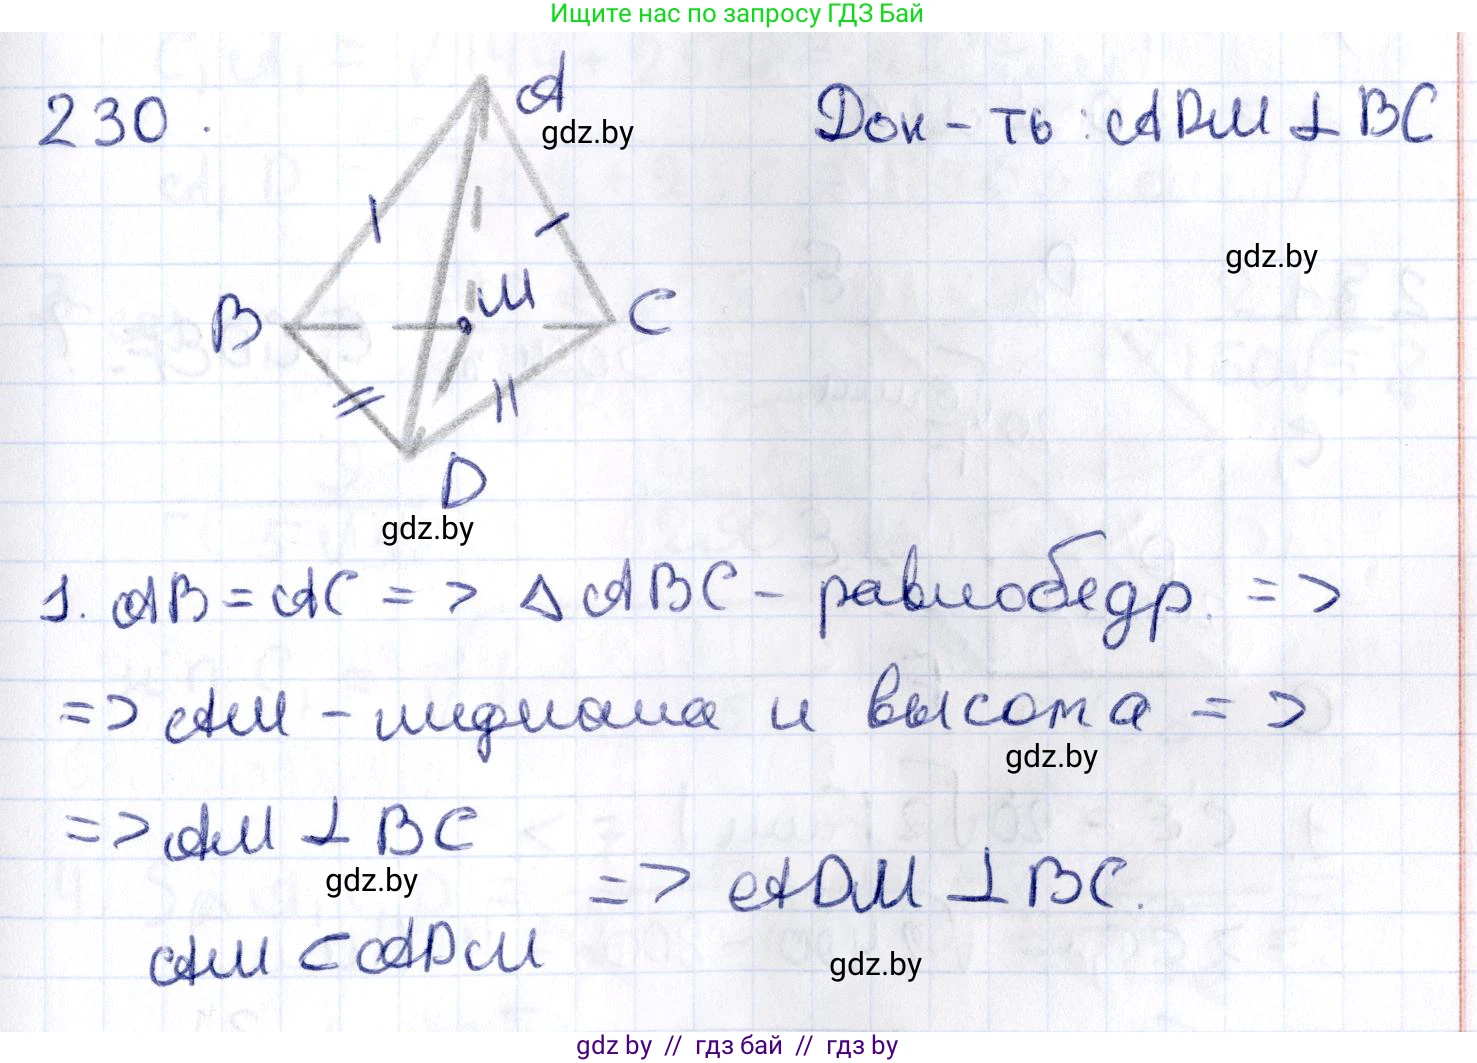 Ищите нас по запросу ГДЗ Бай
230.
A
gdz.by
Док-ть: ADM ⊥ BC
gdz.by
M
B
C
D
gdz.by
1. AB = AC => △ ABC - равнобедр. =>
=> AM - медиана и высота =>
gdz.by
=> AM ⊥ BC
gdz.by
=> ADM ⊥ BC.
AM ⊂ ADM
gdz.by
gdz by // гдз бай // гдз by